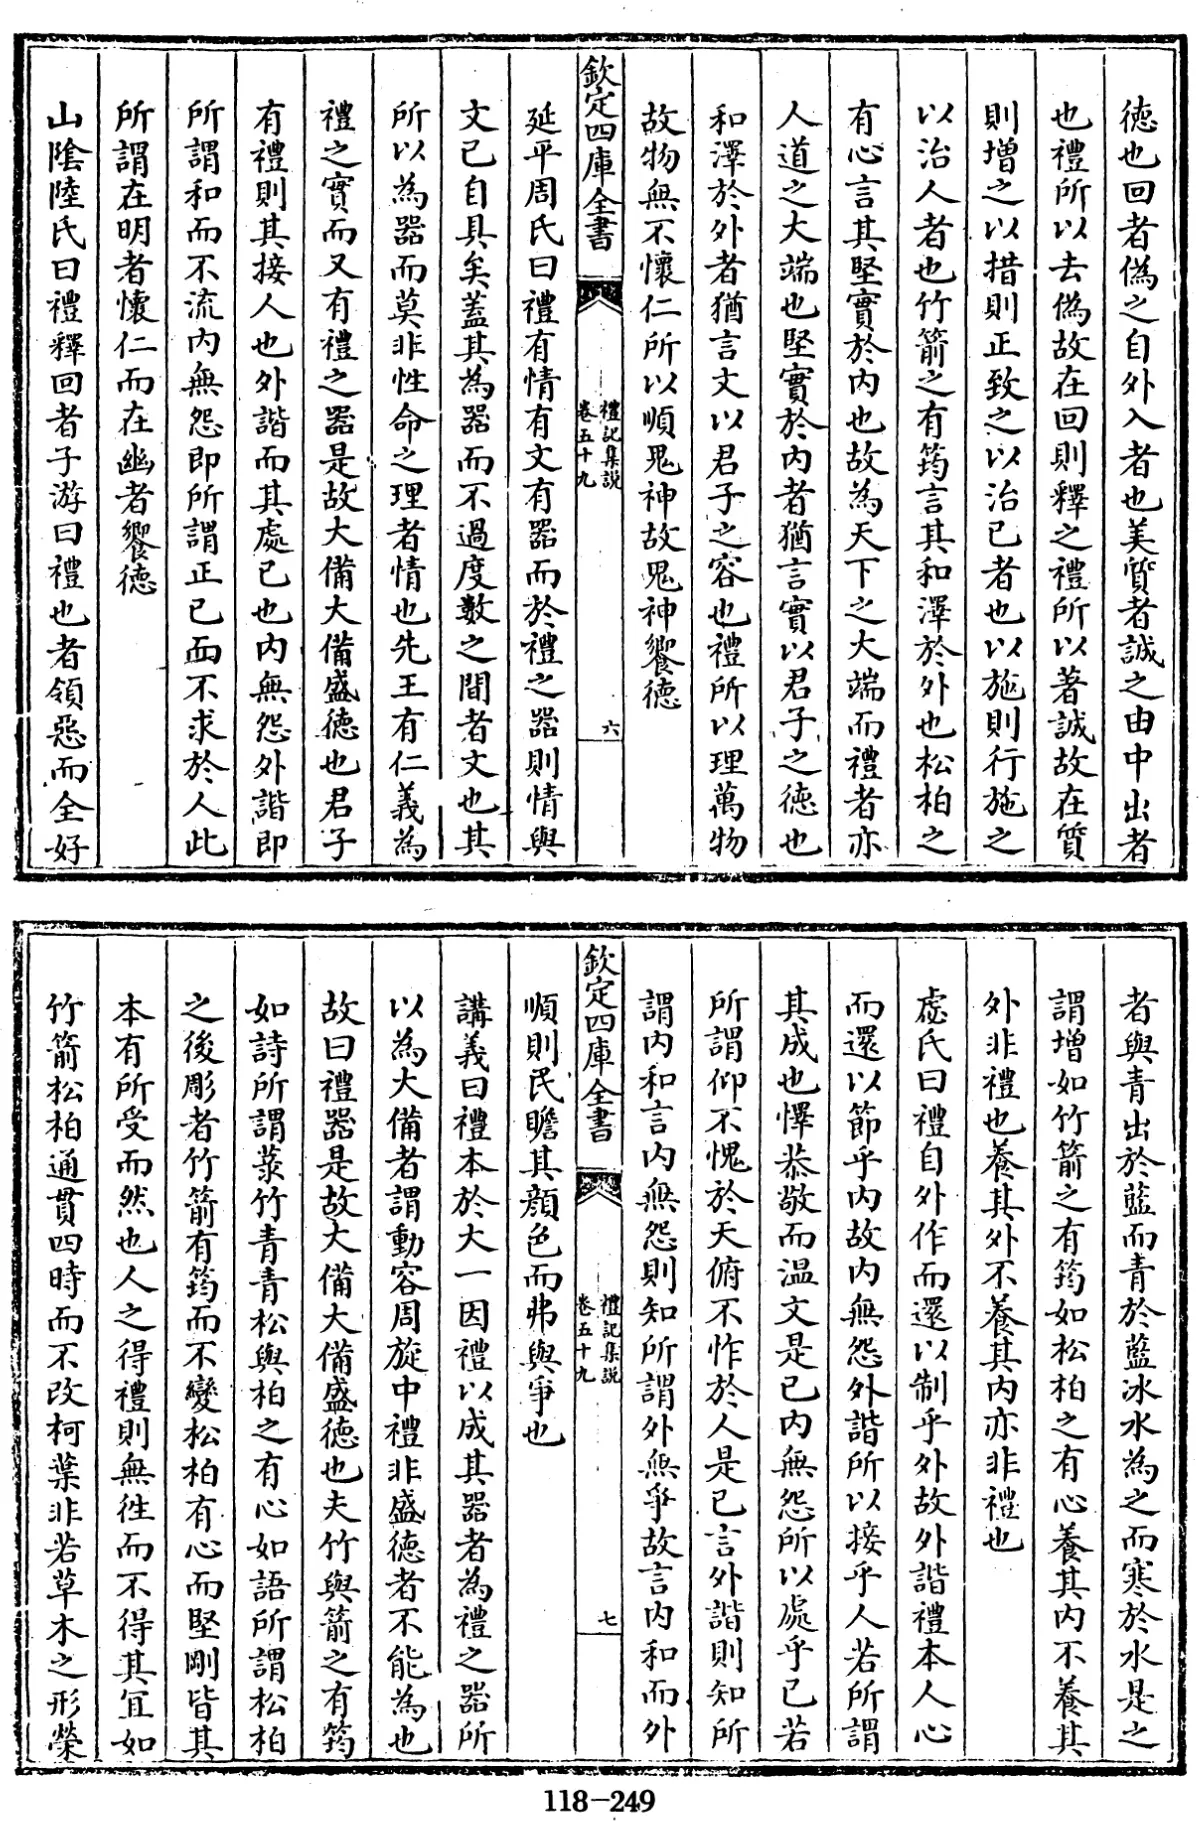 德也回者偽之自外入者也美質者誠之由中出者
也禮所以去偽故在回則釋之禮所以著誠故在質
則增之以措則正致之以治已者也以施則行施之
以治人者也竹箭之有筠言其和澤於外也松柏之
有心言其堅實於内也故為天下之大端而禮者亦
人道之大端也堅實於内者猶言實以君子之德也
和澤於外者猶言文以君子之容也禮所以理萬物
故物無不懷仁所以順鬼神故鬼神饗德
欽定四庫全書
禮記集説
卷五十九
六
延平周氏曰禮有情有文有器而於禮之器則情與
文已自具矣蓋其為器而不過度數之間者文也其
所以為器而莫非性命之理者情也先王有仁義為
禮之實而又有禮之器是故大備大備盛德也君子
有禮則其接人也外諧而其處已也内無怨外諧即
所謂和而不流内無怨即所謂正已而不求於人此
所謂在明者懷仁而在幽者饗德
山陰陸氏曰禮釋回者子游曰禮也者領惡而全好
者與青出於藍而青於藍冰水為之而寒於水是之
謂增如竹箭之有筠如松柏之有心養其内不養其
外非禮也養其外不養其内亦非禮也
慮氏曰禮自外作而還以制乎外故外諧禮本人心
而還以節乎内故内無怨外諧所以接乎人若所謂
其成也懌恭敬而温文是已内無怨所以處乎已若
所謂仰不愧於天俯不怍於人是已言外諧則知所
謂内和言内無怨則知所謂外無爭故言内和而外
欽定四庫全書
禮記集説
卷五十九
七
順則民瞻其顔色而弗與爭也
講義曰禮本於大一因禮以成其器者為禮之器所
以為大備者謂動容周旋中禮非盛德者不能為也
故曰禮器是故大備大備盛德也夫竹與箭之有筠
如詩所謂菉竹青青松與柏之有心如語所謂松柏
之後彫者竹箭有筠而不變松柏有心而堅剛皆其
本有所受而然也人之得禮則無徃而不得其宜如
竹箭松柏通貫四時而不改柯葉非若草木之形榮
118-249